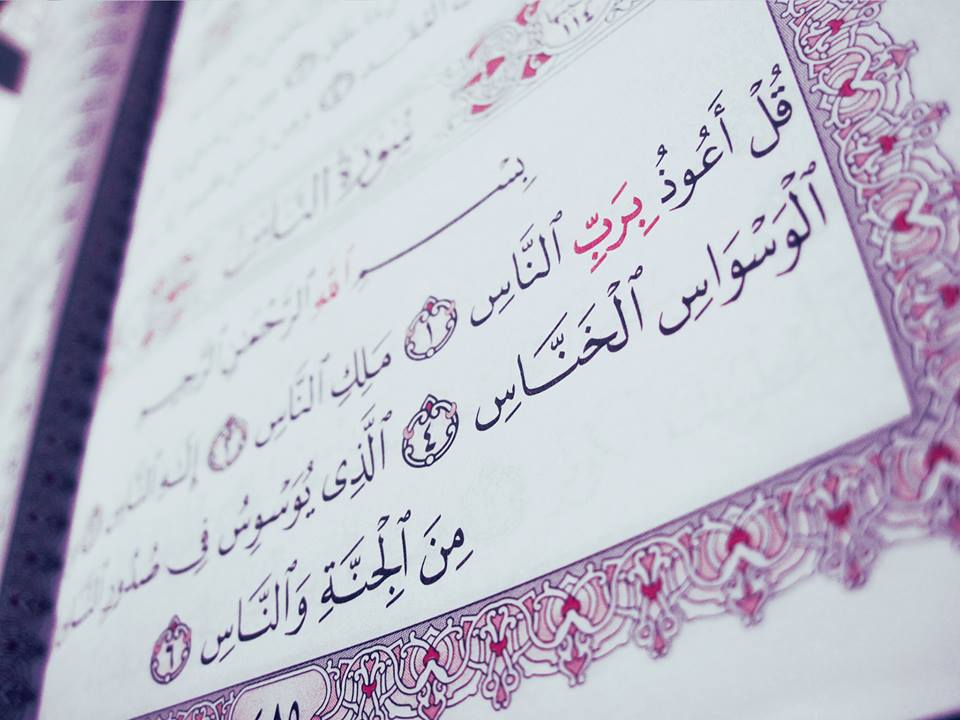 ١١٤
سُورَةُ النَّاسِ
بِسْمِ ٱللَّهِ ٱلرَّحْمَٰنِ ٱلرَّحِيمِ
قُلْ أَعُوذُ بِرَبِّ ٱلنَّاسِ ١ مَلِكِ ٱلنَّاسِ ٢ إِلَٰهِ ٱلنَّاسِ
ٱلْوَسْوَاسِ ٱلْخَنَّاسِ ٤ ٱلَّذِى يُوَسْوِسُ فِى صُدُورِ ٱلنَّاسِ
مِنَ ٱلْجِنَّةِ وَٱلنَّاسِ ٦